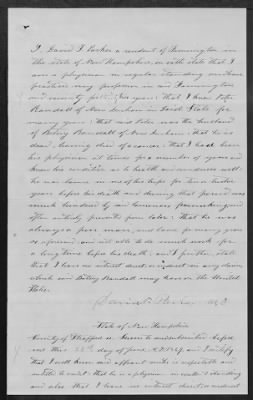 I, David T. Parker a resident of Farmington in
the state of New Hampshire, on oath state that I
am a physician in regular standing and have
practiced my profession in said Farmington
and vicinity for years: that I knew Peter
Randall of New Durham in said State for
many years: that said Peter was the husband
of Betsey Randall of New Durham: that he is
dead, having died of cancer: that I had been
his physician at times for a number of years and
knew his condition as to health and soundness well:
he was lame in one of his hips for ten or twelve
years before his death and during that period was
much troubled by
often entirely prevented from labor: That he was
always a poor man, and lame for many years
as aforesaid, and not able to do much work for
a long time before his death: and I further state
that I have no interest direct or indirect in any claim
which said Betsey Randall may have on the United
States.
David T. Parker M.D.
State of New Hampshire
County of Strafford ss. Sworn to and subscribed before
me this 28th day of June A.D. 1889, and I certify
that I well know said affiant and he is respectable and
entitled to credit: that he is a physician in good standing
and also that I have no interest direct or indirect